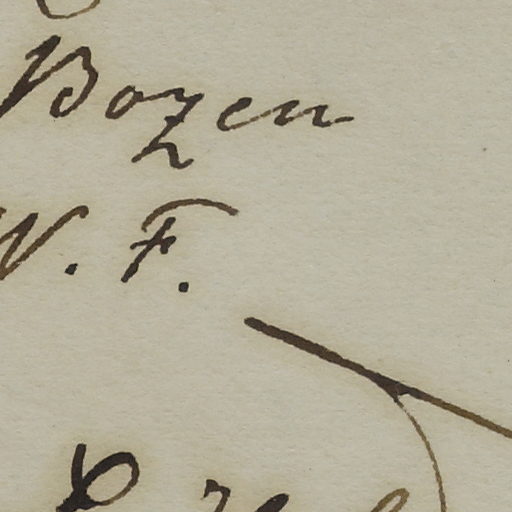 Bozen
W. F.